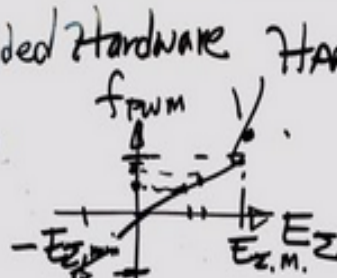 ded Hardware HA
f PWM
-EΣ EΣ.M. EΣ